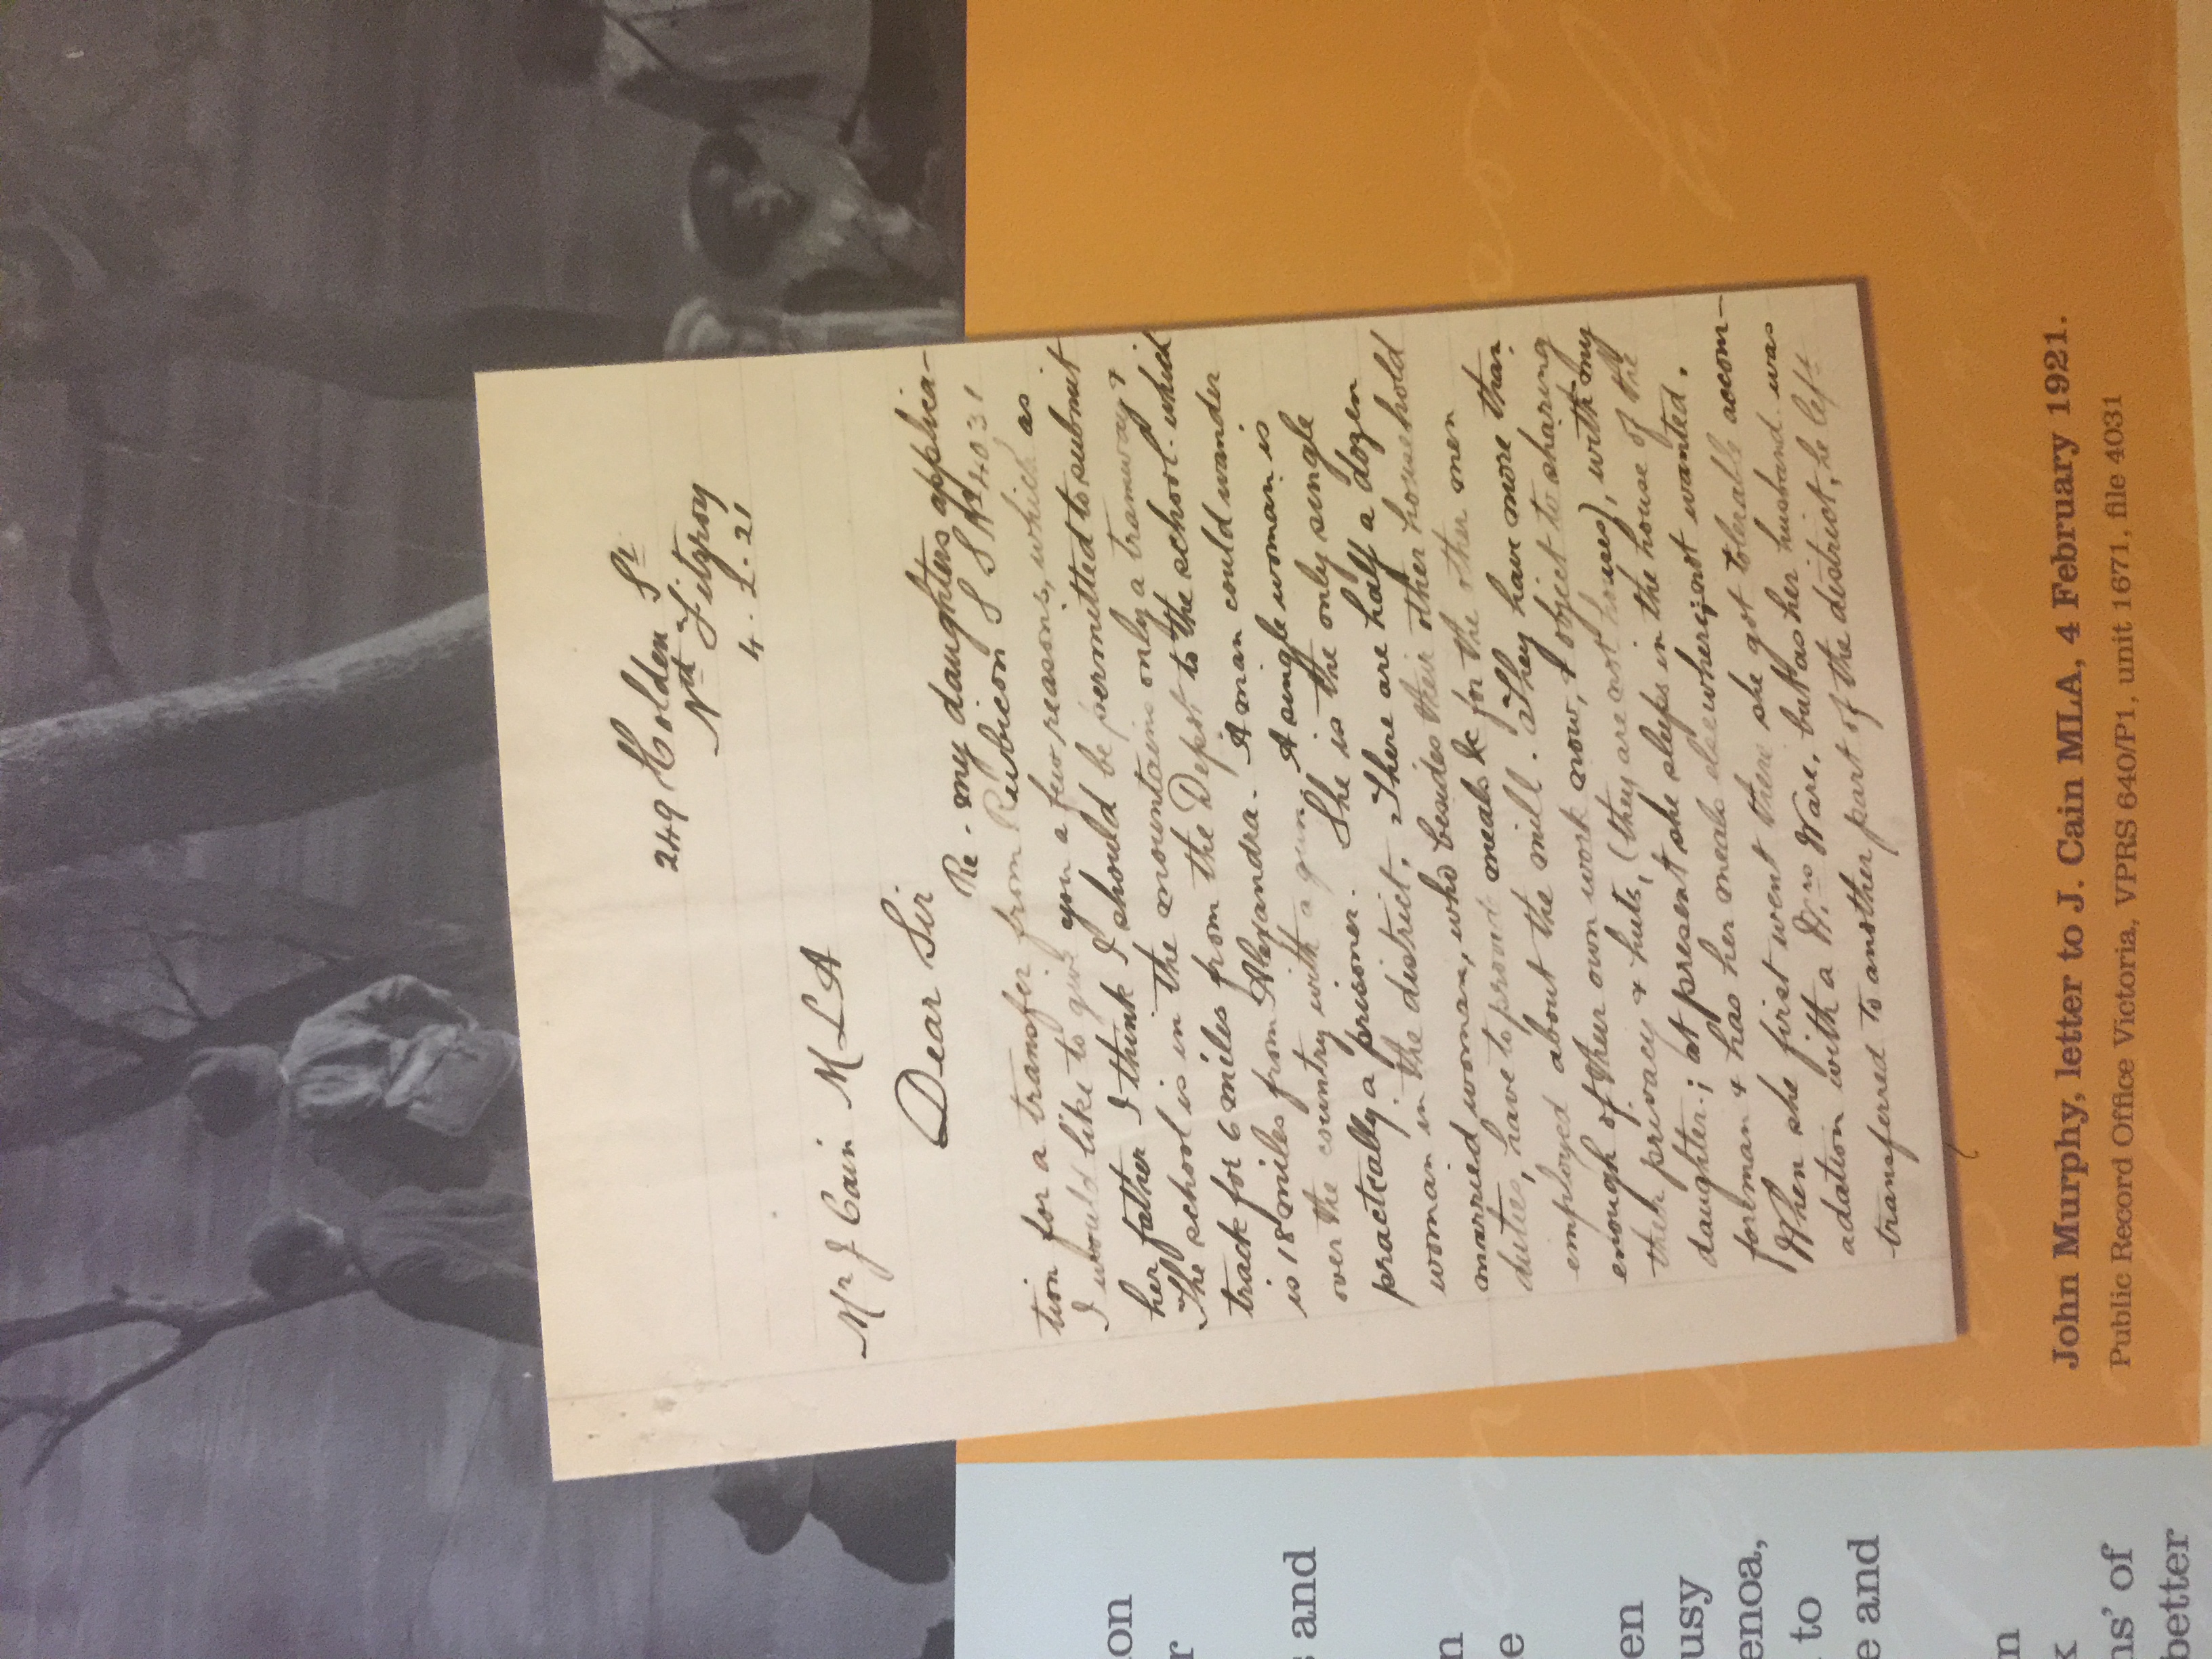 249 Holden St
Nth Fitzroy
4.2.21
Mr J Cain M L A
Dear Sir
Re. my daughters applica-
tion for a transfer from Rubicon S S No 4031
I would like to give you a few reasons, which as
her father I think I should be permitted to submit
The school is in the mountains only a tramway &
track for 6 miles from the Depot to the school which
is 18 miles from Alexandra. A man could wander
over the country with a gun, A single woman is
practically a prisoner. She is the only single
woman in the district. There are half a dozen
married woman, who besides their other household
duties, have to provide meals &c for the other men
employed about the mill. They have more than
enough of their own work now, & object to sharing
their privacy & huts, (they are not houses), with my
daughter; at present she sleeps in the house of the
foreman & has her meals elsewhere; not wanted.
When she first went there she got tolerable accom-
adation with a Mrs Ware. but as her husband was
transferred to another part of the district, he left
John Murphy, letter to J. Cain MLA, 4 February 1921.
Public Record Office Victoria, VPRS 640/P1, unit 1671, file 4031
on
r
s and
n
e
en
usy
enoa,
to
e and
n
k
ns' of
better